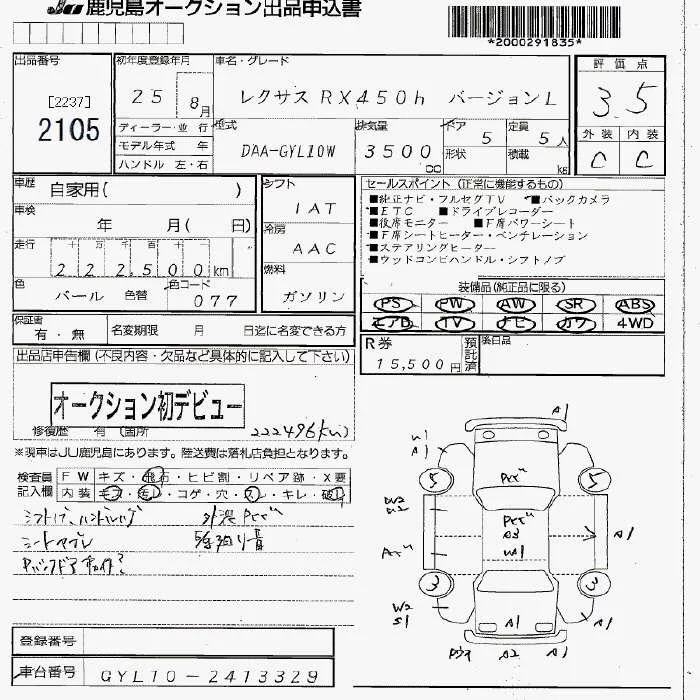 JU 鹿児島オークション出品申込書
*2000291835*
出品番号
[2237]
2105
初年度登録年月
25 8月
ディーラー・並行
モデル年式 年
ハンドル 左・右
車名・グレード
レクサスRX450h バージョンL
型式
DAA-GYL10W
排気量
3500 cc
ドア 5
形状
定員 5人
積載 kg
評価点
3.5
外装 内装
C C
車歴 自家用( )
車検 年 月( 日)
走行 222,500km
色 パール 色替
色コード 077
シフト IAT
冷房 AAC
燃料 ガソリン
セールスポイント (正常に機能するもの)
■純正ナビ・フルセグTV ■バックカメラ
■ETC ■ドライブレコーダー
■後席モニター ■F席パワーシート
■F席シートヒーター・ベンチレーション
■ステアリングヒーター
■ウッドコンビハンドル・シフトノブ
装備品(純正品に限る)
PS PW AW SR ABS
エアB TV ナビ カワ 4WD
保証書 有・無
名変期限 月 日迄に名変できる方
R券 15,500円 預託済
後日品
出品店申告欄(不良内容・欠品など具体的に記入して下さい)
オークション初デビュー
修復歴 有 (箇所
222496km)
※現車はJU鹿児島にあります。陸送費は落札店負担となります。
検査員記入欄
FW キズ・飛石・ヒビ割・リペア跡・X要
内装 キズ・汚レ・コゲ・穴・スレ・キレ・破レ
外装
A1
W1
A1
5 5
A3
W1
W2
A1
3 3
W2
S1
A1 A1
A2 A1
登録番号
車台番号 GYL10-2413329